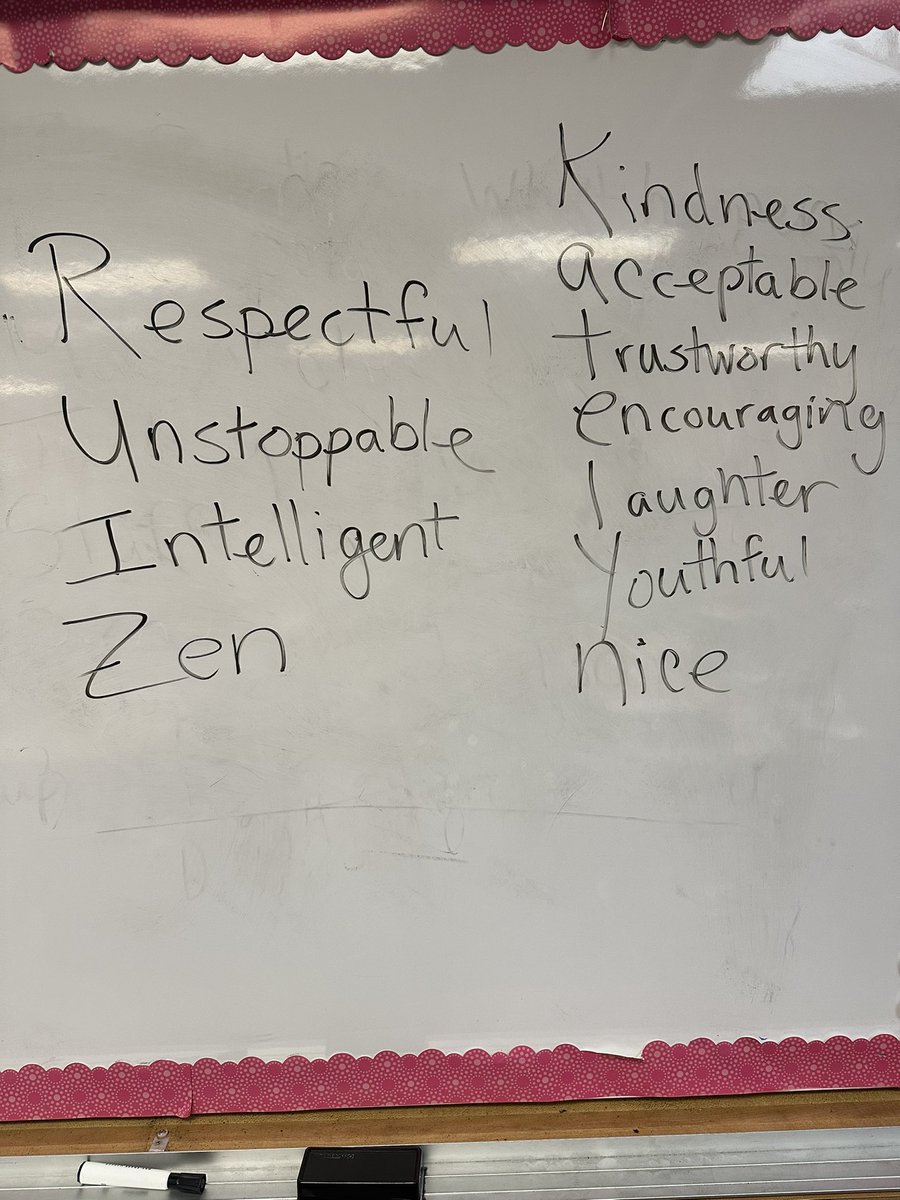 Respectful
Unstoppable
Intelligent
Zen
Kindness
acceptable
trustworthy
encouraging
laughter
Youthful
nice